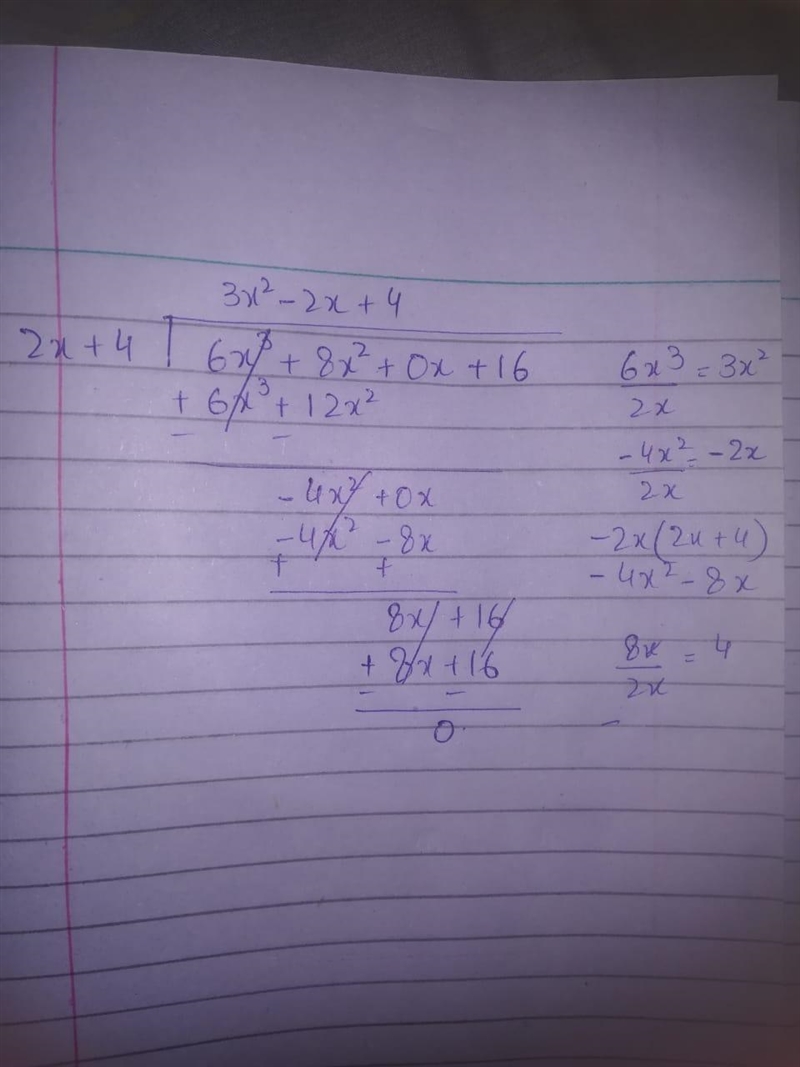 3x² - 2x + 4
2x + 4 | 6x³ + 8x² + 0x + 16
+ 6x³ + 12x²
- -
- 4x² + 0x
- 4x² - 8x
+ +
8x + 16
+ 8x + 16
- -
0
6x³/2x = 3x²
-4x²/2x = -2x
-2x(2x + 4)
-4x² - 8x
8x/2x = 4
-